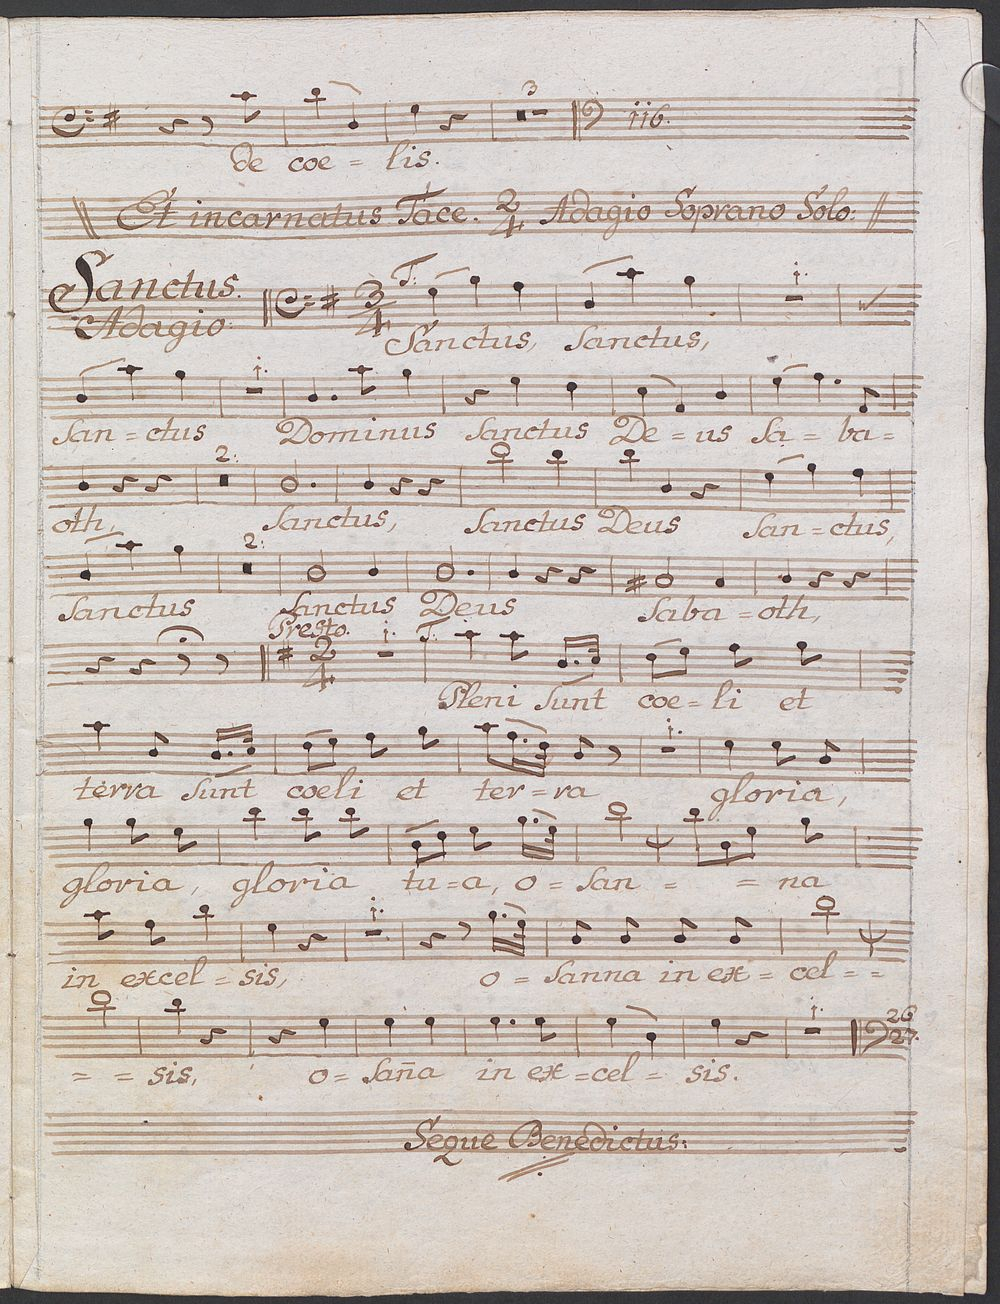 3
116.
de coe = lis.
Et incarnatus Tace. 2/4 Adagio Soprano Solo.
Sanctus.
Adagio.
3/4 T: 1.
Sanctus, Sanctus,
1. 1.
San = ctus Dominus Sanctus De = us Sa = ba =
2:
oth, Sanctus, Sanctus Deus San = ctus,
2:
Sanctus Sanctus Deus Saba = oth,
Presto.
2/4 1. T.
Pleni sunt coe = li et
1.
terra sunt coeli et ter = ra gloria,
gloria, gloria tu = a, o = san = = na
1.
in excel = sis, o = sanna in ex = cel = =
= = sis, o = saña in ex = cel = sis.
1. 26
27.
Seque Benedictus: